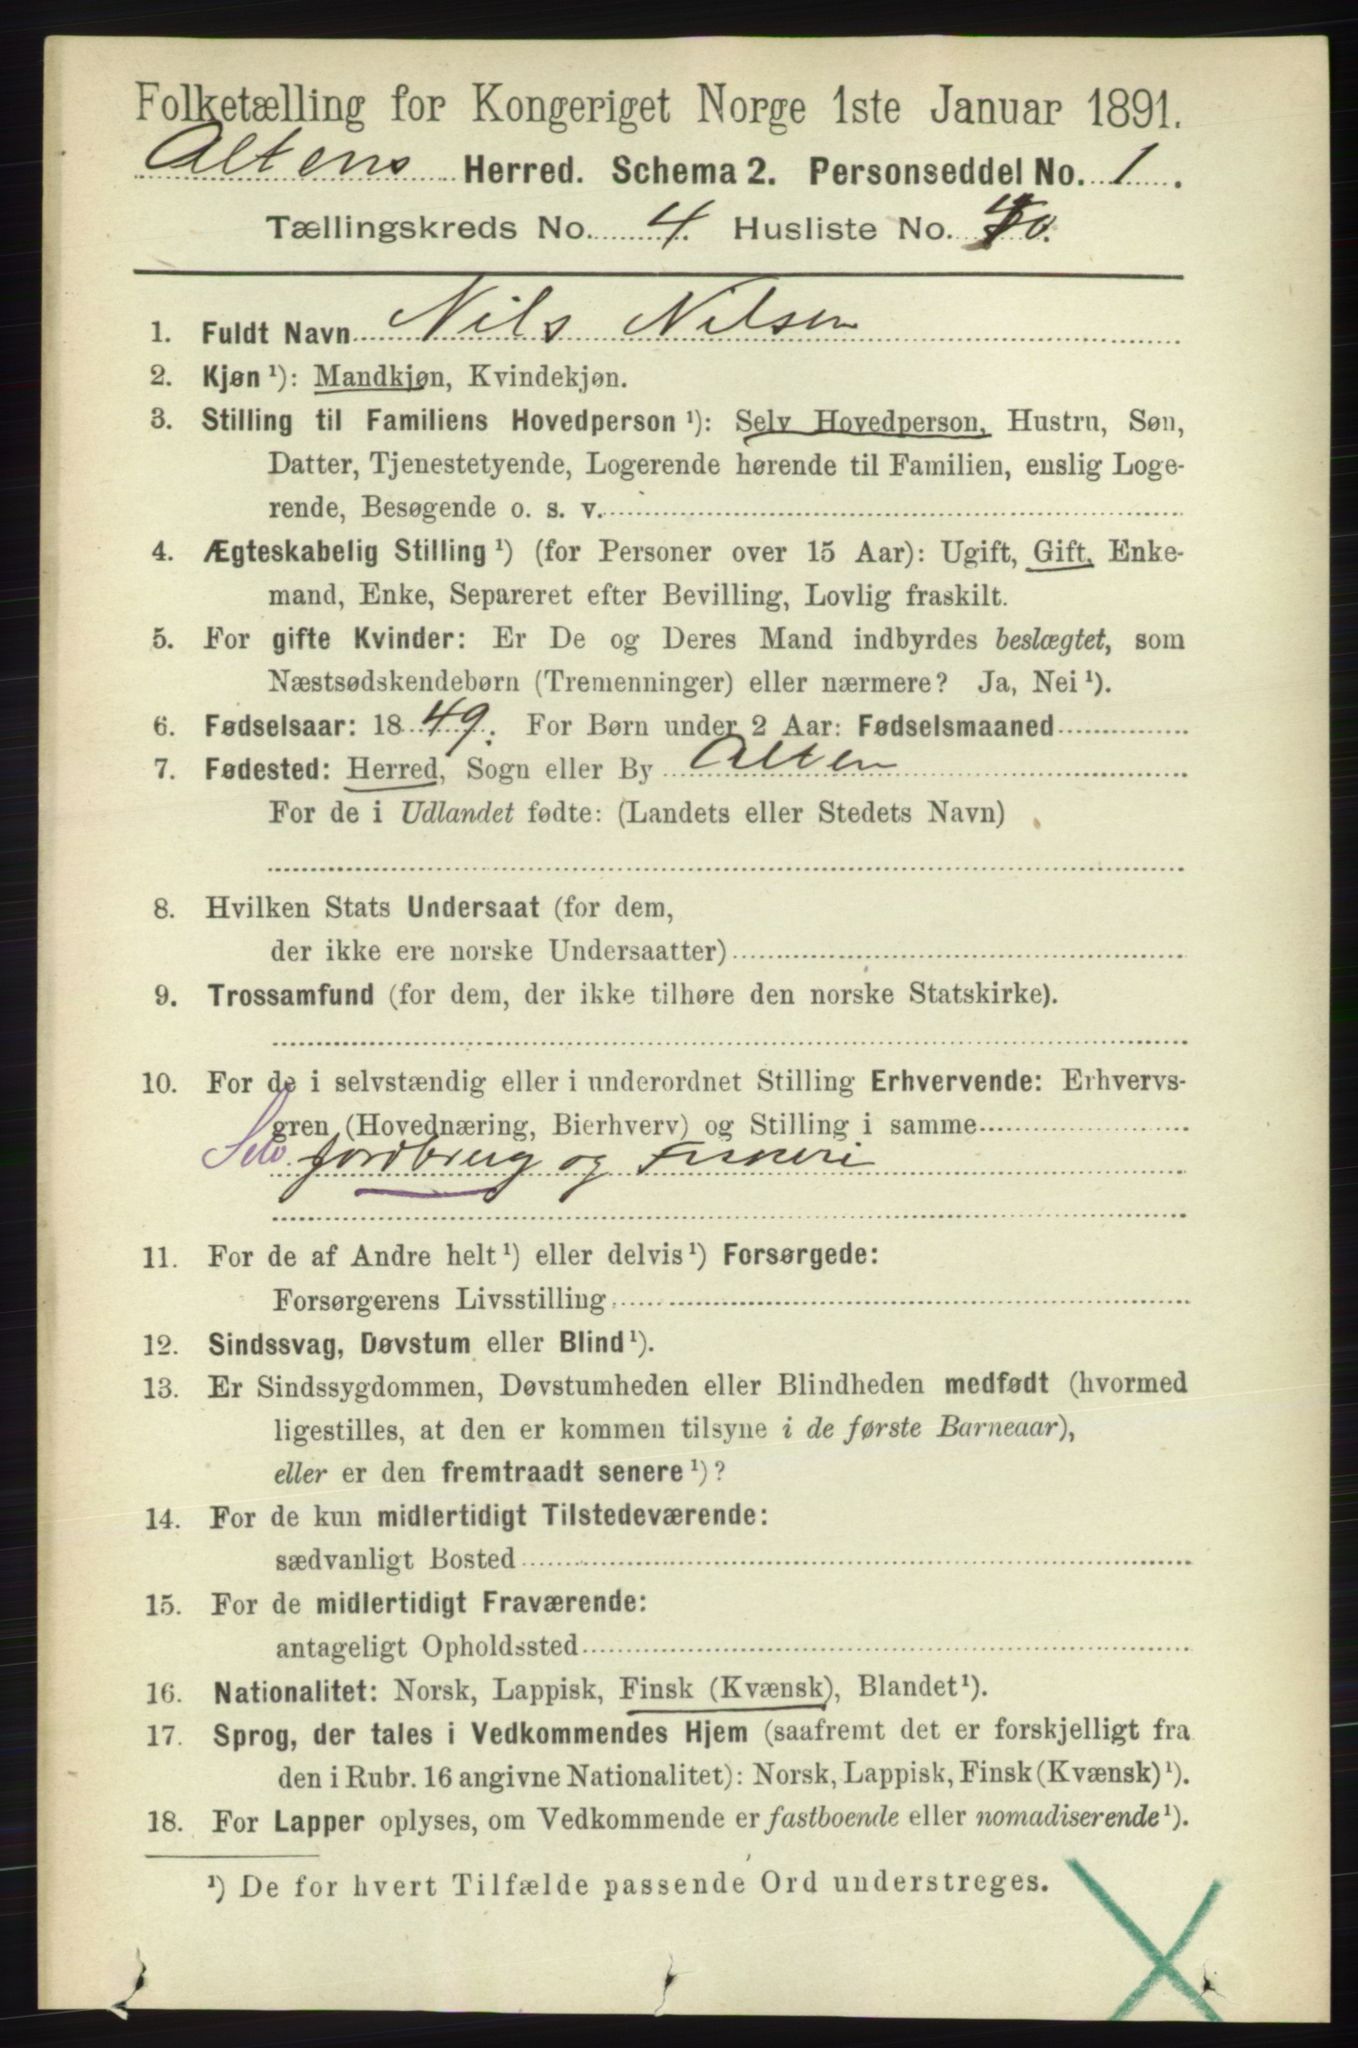 Folketælling for Kongeriget Norge 1ste Januar 1891.
Altens Herred. Schema 2. Personseddel No. 1.
Tællingskreds No. 4. Husliste No. 40.
1. Fuldt Navn Nils Nilsen
2. Kjøn ¹): Mandkjøn, Kvindekjøn.
3. Stilling til Familiens Hovedperson ¹): Selv Hovedperson, Hustru, Søn,
Datter, Tjenestetyende, Logerende hørende til Familien, enslig Loge-
rende, Besøgende o. s. v.
4. Ægteskabelig Stilling ¹) (for Personer over 15 Aar): Ugift, Gift, Enke-
mand, Enke, Separeret efter Bevilling, Lovlig fraskilt.
5. For gifte Kvinder: Er De og Deres Mand indbyrdes beslægtet, som
Næstsødskendebørn (Tremenninger) eller nærmere? Ja, Nei ¹).
6. Fødselsaar: 1849. For Børn under 2 Aar: Fødselsmaaned
7. Fødested: Herred, Sogn eller By Alten
For de i Udlandet fødte: (Landets eller Stedets Navn)
8. Hvilken Stats Undersaat (for dem,
der ikke ere norske Undersaatter)
9. Trossamfund (for dem, der ikke tilhøre den norske Statskirke).
10. For de i selvstændig eller i underordnet Stilling Erhvervende: Erhvervs-
gren (Hovednæring, Bierhverv) og Stilling i samme
Selv Jordbrug og Fiskeri
11. For de af Andre helt ¹) eller delvis ¹) Forsørgede:
Forsørgerens Livsstilling
12. Sindssvag, Døvstum eller Blind ¹).
13. Er Sindssygdommen, Døvstumheden eller Blindheden medfødt (hvormed
ligestilles, at den er kommen tilsyne i de første Barneaar),
eller er den fremtraadt senere ¹)?
14. For de kun midlertidigt Tilstedeværende:
sædvanligt Bosted
15. For de midlertidigt Fraværende:
antageligt Opholdssted
16. Nationalitet: Norsk, Lappisk, Finsk (Kvænsk), Blandet ¹).
17. Sprog, der tales i Vedkommendes Hjem (saafremt det er forskjelligt fra
den i Rubr. 16 angivne Nationalitet): Norsk, Lappisk, Finsk (Kvænsk) ¹).
18. For Lapper oplyses, om Vedkommende er fastboende eller nomadiserende ¹).
¹) De for hvert Tilfælde passende Ord understreges.